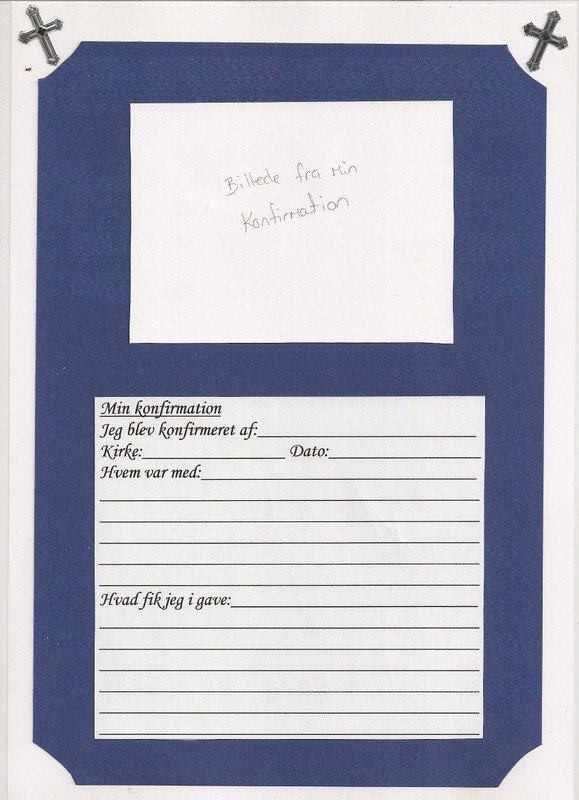 Billede fra min
Konfirmation
Min konfirmation
Jeg blev konfirmeret af:
Kirke: Dato:
Hvem var med:
Hvad fik jeg i gave: